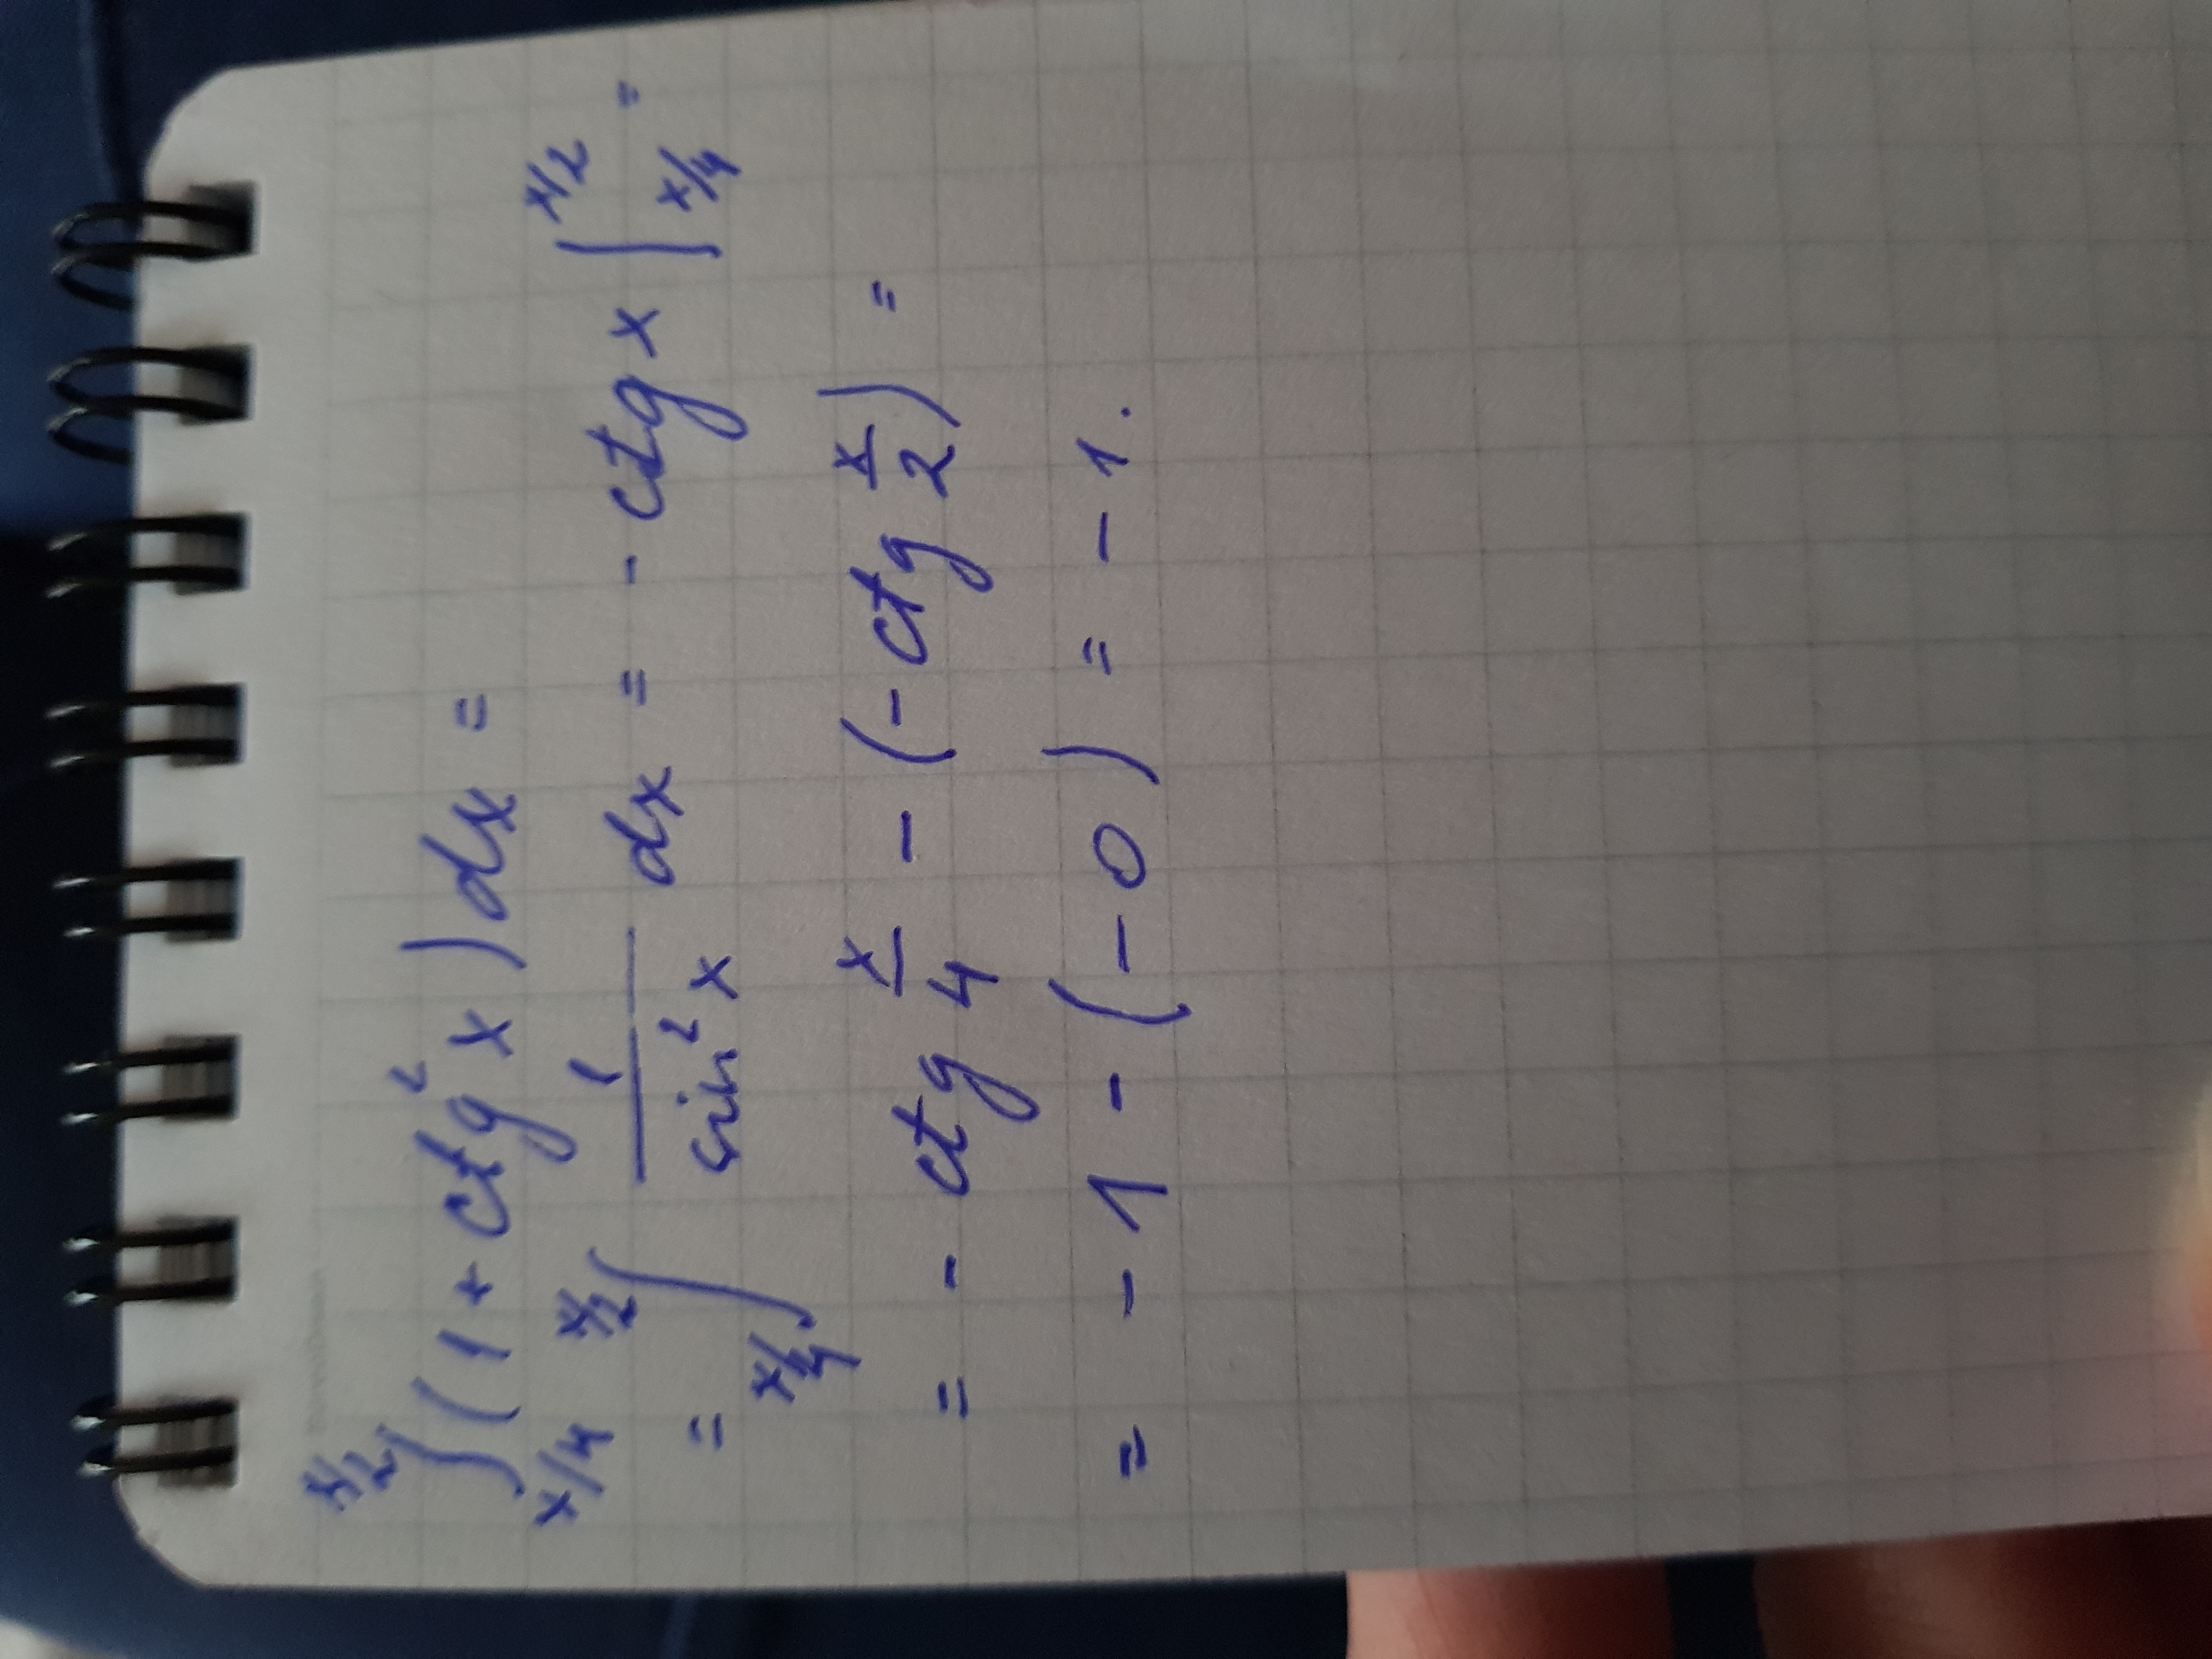 ∫_{π/4}^{π/2} (1 + ctg² x) dx =
= ∫_{π/4}^{π/2} 1/sin² x dx = - ctg x |_{π/4}^{π/2} =
= - ctg π/4 - (- ctg π/2) =
= - 1 - (- 0) = - 1.